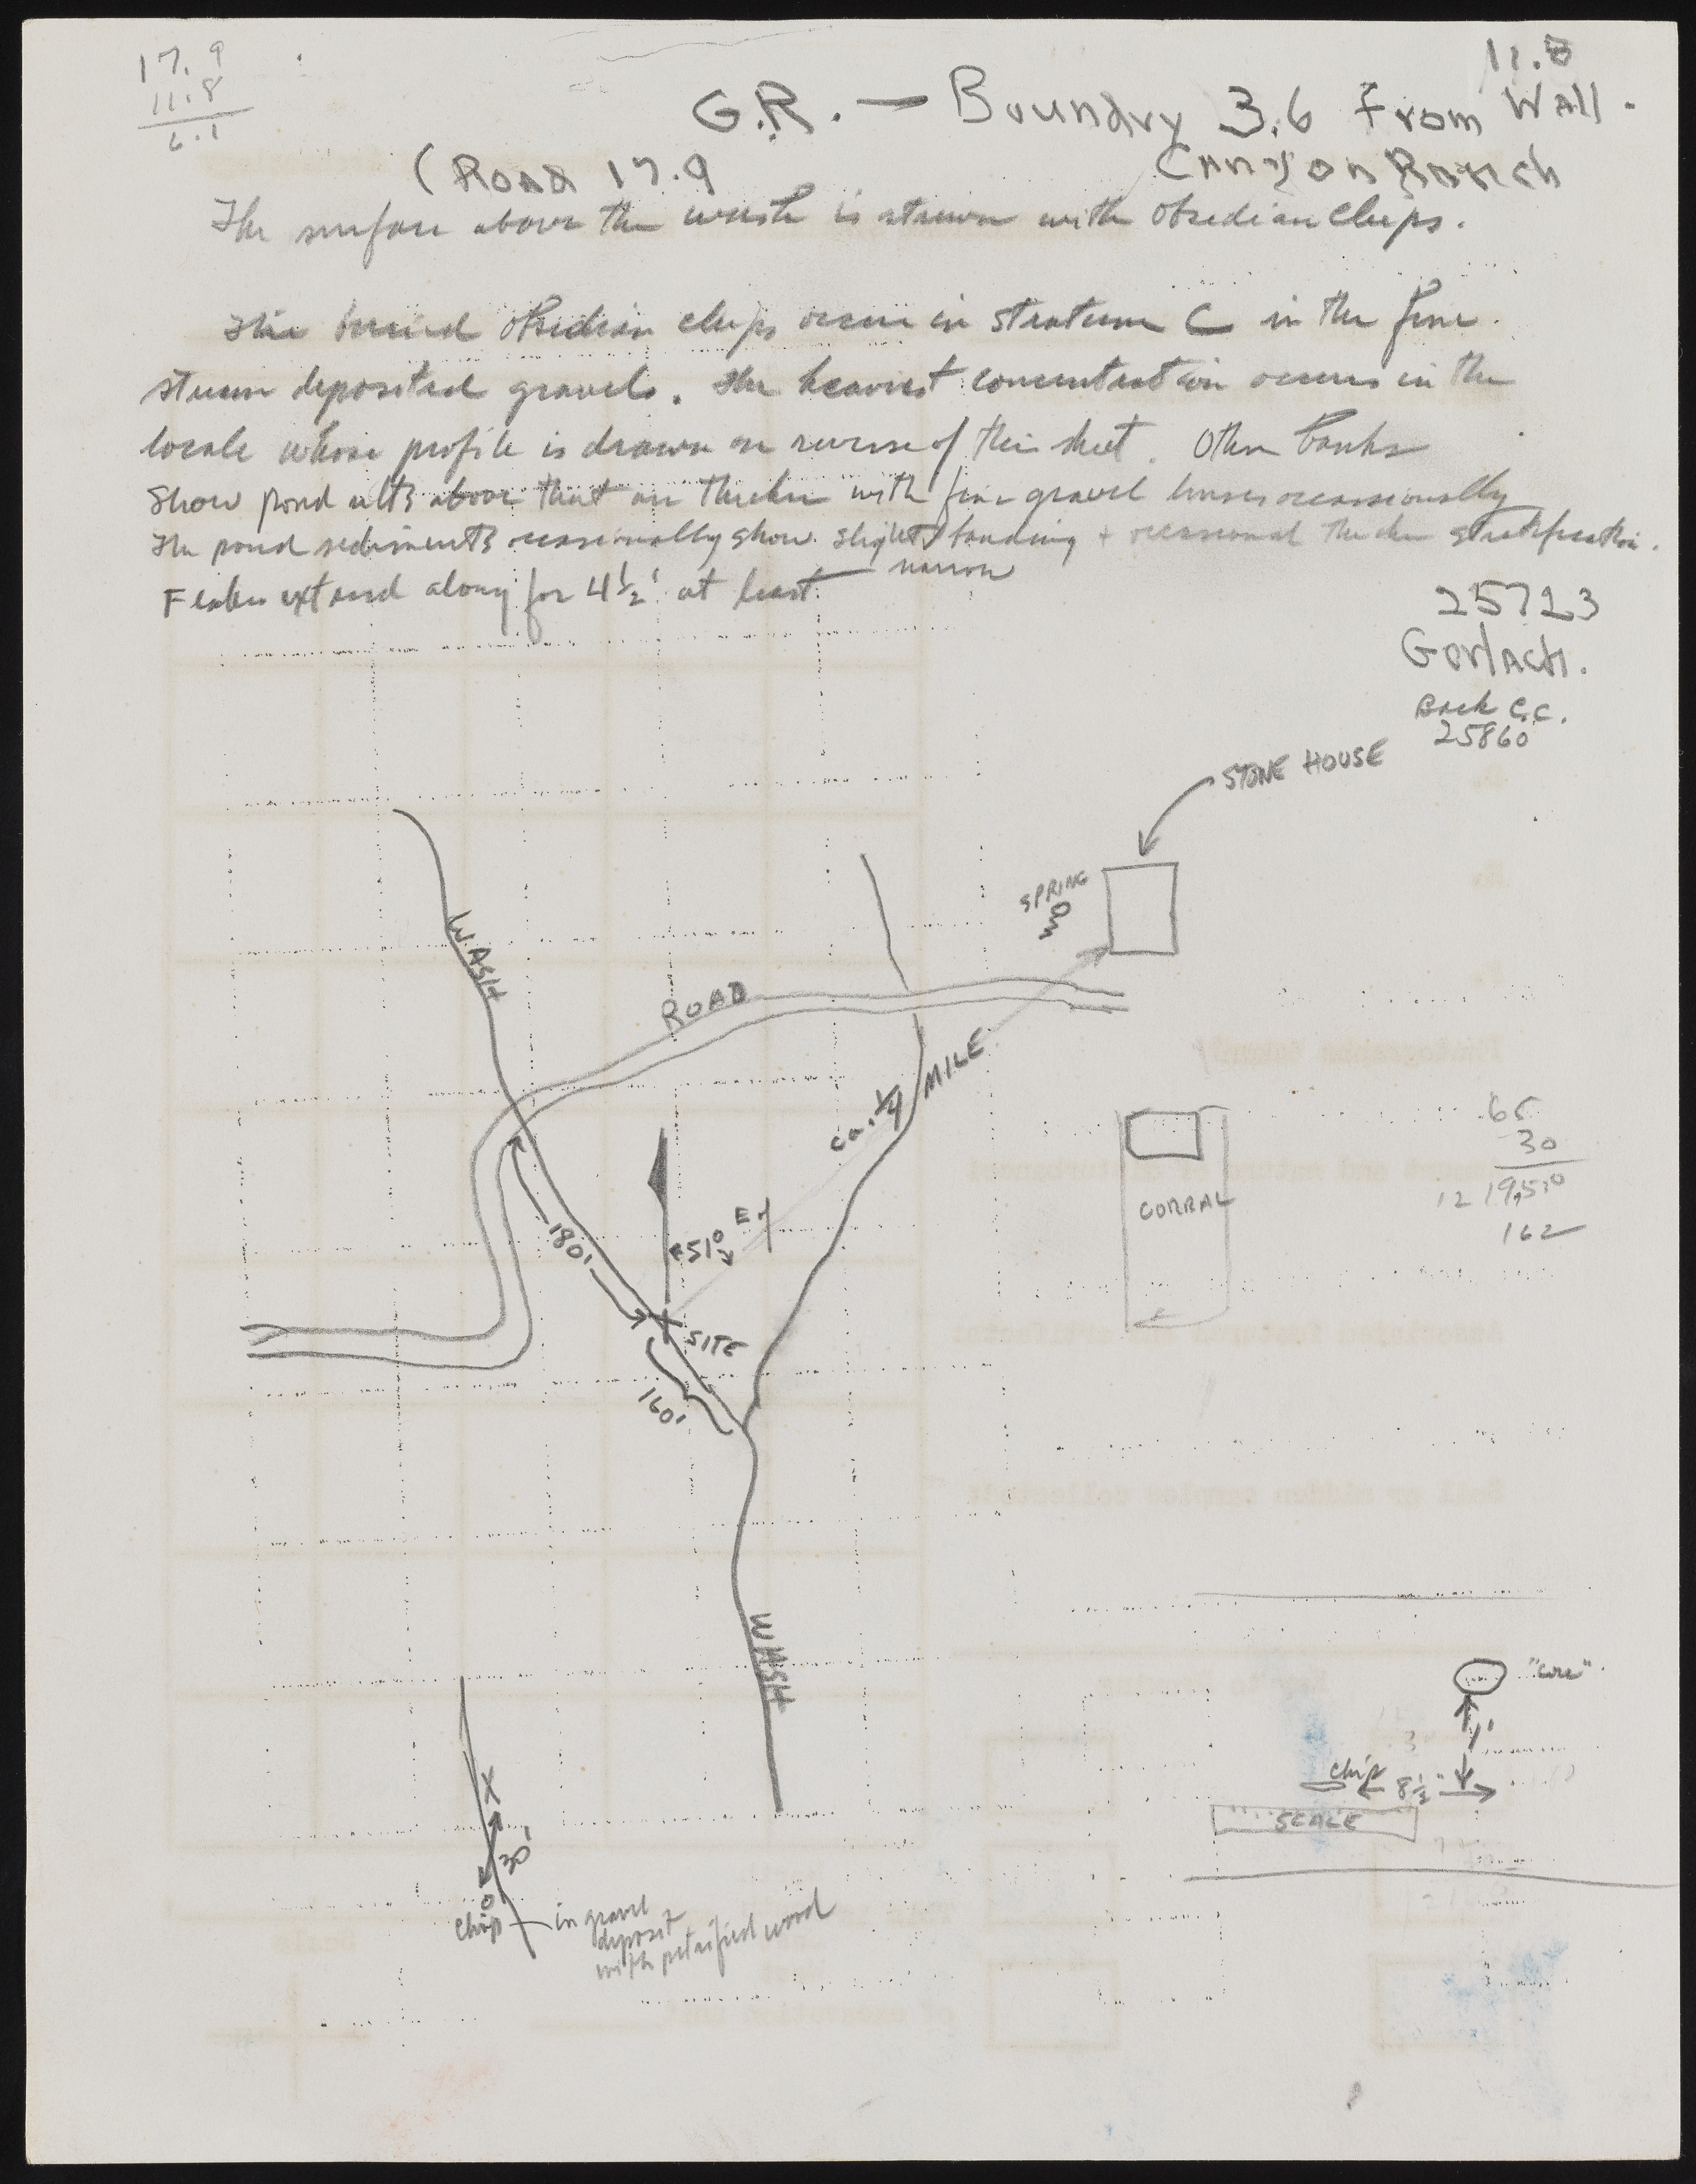 17.9
11.8
6.1
11.8
G.R. — Boundry 3.6 From Wall.
Canyon Ranch
(Road 17.9
The surface above the wash is strewn with obsidian chips.
The buried obsidian chips occur in stratum C in the fine
stream deposited gravels. The heaviest concentration occurs in the
locale whose profile is drawn on reverse of this sheet. Other banks
Show pond silts above that are thicker with fine gravel lenses occassionally
The pond sediments occasionally show slight banding + occasional thicker stratification.
narrow
Flakes extend along for 4½' at least
25723
Gerlach.
Back C.C.
25860
STONE HOUSE
SPRING
WASH
ROAD
ca. ¼ MILE
65
30
12 19,50
162
CORRAL
51° E of
180'
SITE
160'
WASH
"core"
1'
chip
8½"
SCALE
X
30'
chip
in gravel
deposit
with petrified wood